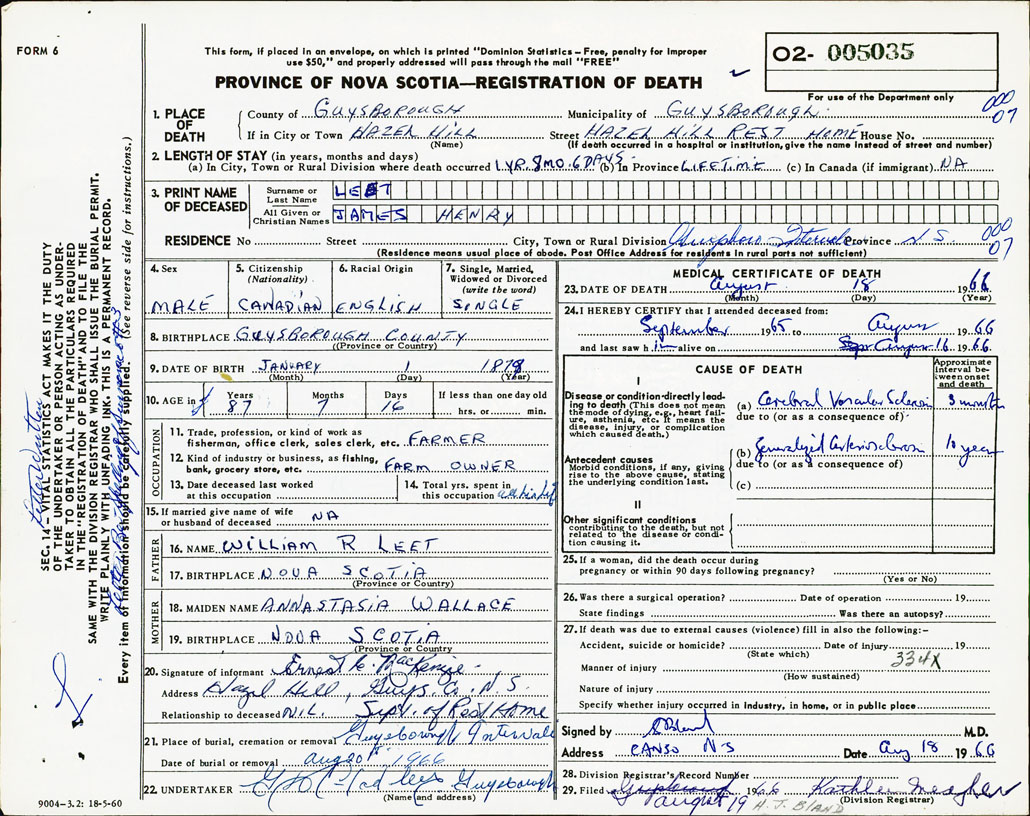 FORM 6
This form, if placed in an envelope, on which is printed "Dominion Statistics – Free, penalty for improper
use $50," and properly addressed will pass through the mail "FREE"
02- 005035
PROVINCE OF NOVA SCOTIA—REGISTRATION OF DEATH
For use of the Department only
000
07
1. PLACE OF DEATH
County of GUYSBOROUGH Municipality of GUYSBOROUGH
If in City or Town HAZEL HILL Street HAZEL HILL REST HOME House No.
(Name) (If death occurred in a hospital or institution, give the name instead of street and number)
2. LENGTH OF STAY (in years, months and days)
(a) In City, Town or Rural Division where death occurred 1 YR. 8 MO. 6 DAYS (b) In Province LIFETIME (c) In Canada (if immigrant) NA
3. PRINT NAME OF DECEASED
Surname or Last Name LEET
All Given or Christian Names JAMES HENRY
RESIDENCE No Street City, Town or Rural Division Intervale Province N.S.
000
07
(Residence means usual place of abode. Post Office Address for residents in rural parts not sufficient)
4. Sex MALE
5. Citizenship (Nationality) CANADIAN
6. Racial Origin ENGLISH
7. Single, Married, Widowed or Divorced (write the word) SINGLE
8. BIRTHPLACE GUYSBOROUGH COUNTY
(Province or Country)
9. DATE OF BIRTH JANUARY 1
(Month) (Day) (Year)
10. AGE in Years 87 Months 7 Days 16 If less than one day old hrs. or min.
OCCUPATION
11. Trade, profession, or kind of work as
fisherman, office clerk, sales clerk, etc. FARMER
12. Kind of industry or business, as fishing,
bank, grocery store, etc. FARM OWNER
13. Date deceased last worked
at this occupation
14. Total yrs. spent in
this occupation
15. If married give name of wife
or husband of deceased NA
FATHER
16. NAME WILLIAM R LEET
17. BIRTHPLACE NOVA SCOTIA
(Province or Country)
MOTHER
18. MAIDEN NAME ANNASTASIA WALLACE
19. BIRTHPLACE NOVA SCOTIA
(Province or Country)
20. Signature of informant Ernest C. MacKenzie
Address Hazel Hill, Guys. Co. N.S.
Relationship to deceased NIL. Supt. of Rest Home
21. Place of burial, cremation or removal Guysborough Intervale
Date of burial or removal Aug 20 1966
22. UNDERTAKER Guysborough
(Name and address)
9004–3.2: 18-5-60
MEDICAL CERTIFICATE OF DEATH
23. DATE OF DEATH August 18 1966
(Month) (Day) (Year)
24. I HEREBY CERTIFY that I attended deceased from:
September 1965 to August 1966
and last saw h i alive on August 16 1966
CAUSE OF DEATH
Approximate interval between onset and death
I
Disease or condition directly leading to death (This does not mean
the mode of dying, e.g., heart failure, asthenia, etc. It means the
disease, injury, or complication
which caused death.)
(a) Cerebral Vascular Sclerosis 3 months
due to (or as a consequence of)
Antecedent causes
Morbid conditions, if any, giving
rise to the above cause, stating
the underlying condition last.
(b) Generalized Arteriosclerosis 10 years
due to (or as a consequence of)
(c)
II
Other significant conditions
contributing to the death, but not
related to the disease or condition causing it.
25. If a woman, did the death occur during
pregnancy or within 90 days following pregnancy?
(Yes or No)
26. Was there a surgical operation? Date of operation 19
State findings Was there an autopsy?
27. If death was due to external causes (violence) fill in also the following:–
Accident, suicide or homicide? Date of injury 19
(State which)
334X
Manner of injury
(How sustained)
Nature of injury
Specify whether injury occurred in industry, in home, or in public place
Signed by M.D.
Address CANSO N S Date Aug 18 1966
28. Division Registrar's Record Number
29. Filed August 19 1966 Kathleen Meagher
(Division Registrar)
H. J. BLAND
SEC. 14 – VITAL STATISTICS ACT MAKES IT THE DUTY
OF THE UNDERTAKER OR PERSON ACTING AS UNDERTAKER TO OBTAIN ALL THE PARTICULARS REQUIRED
IN THE "REGISTRATION OF DEATH" AND TO FILE THE
SAME WITH THE DIVISION REGISTRAR WHO SHALL ISSUE THE BURIAL PERMIT.
WRITE PLAINLY WITH UNFADING INK. THIS IS A PERMANENT RECORD.
Every item of information should be carefully supplied. (See reverse side for instructions.)